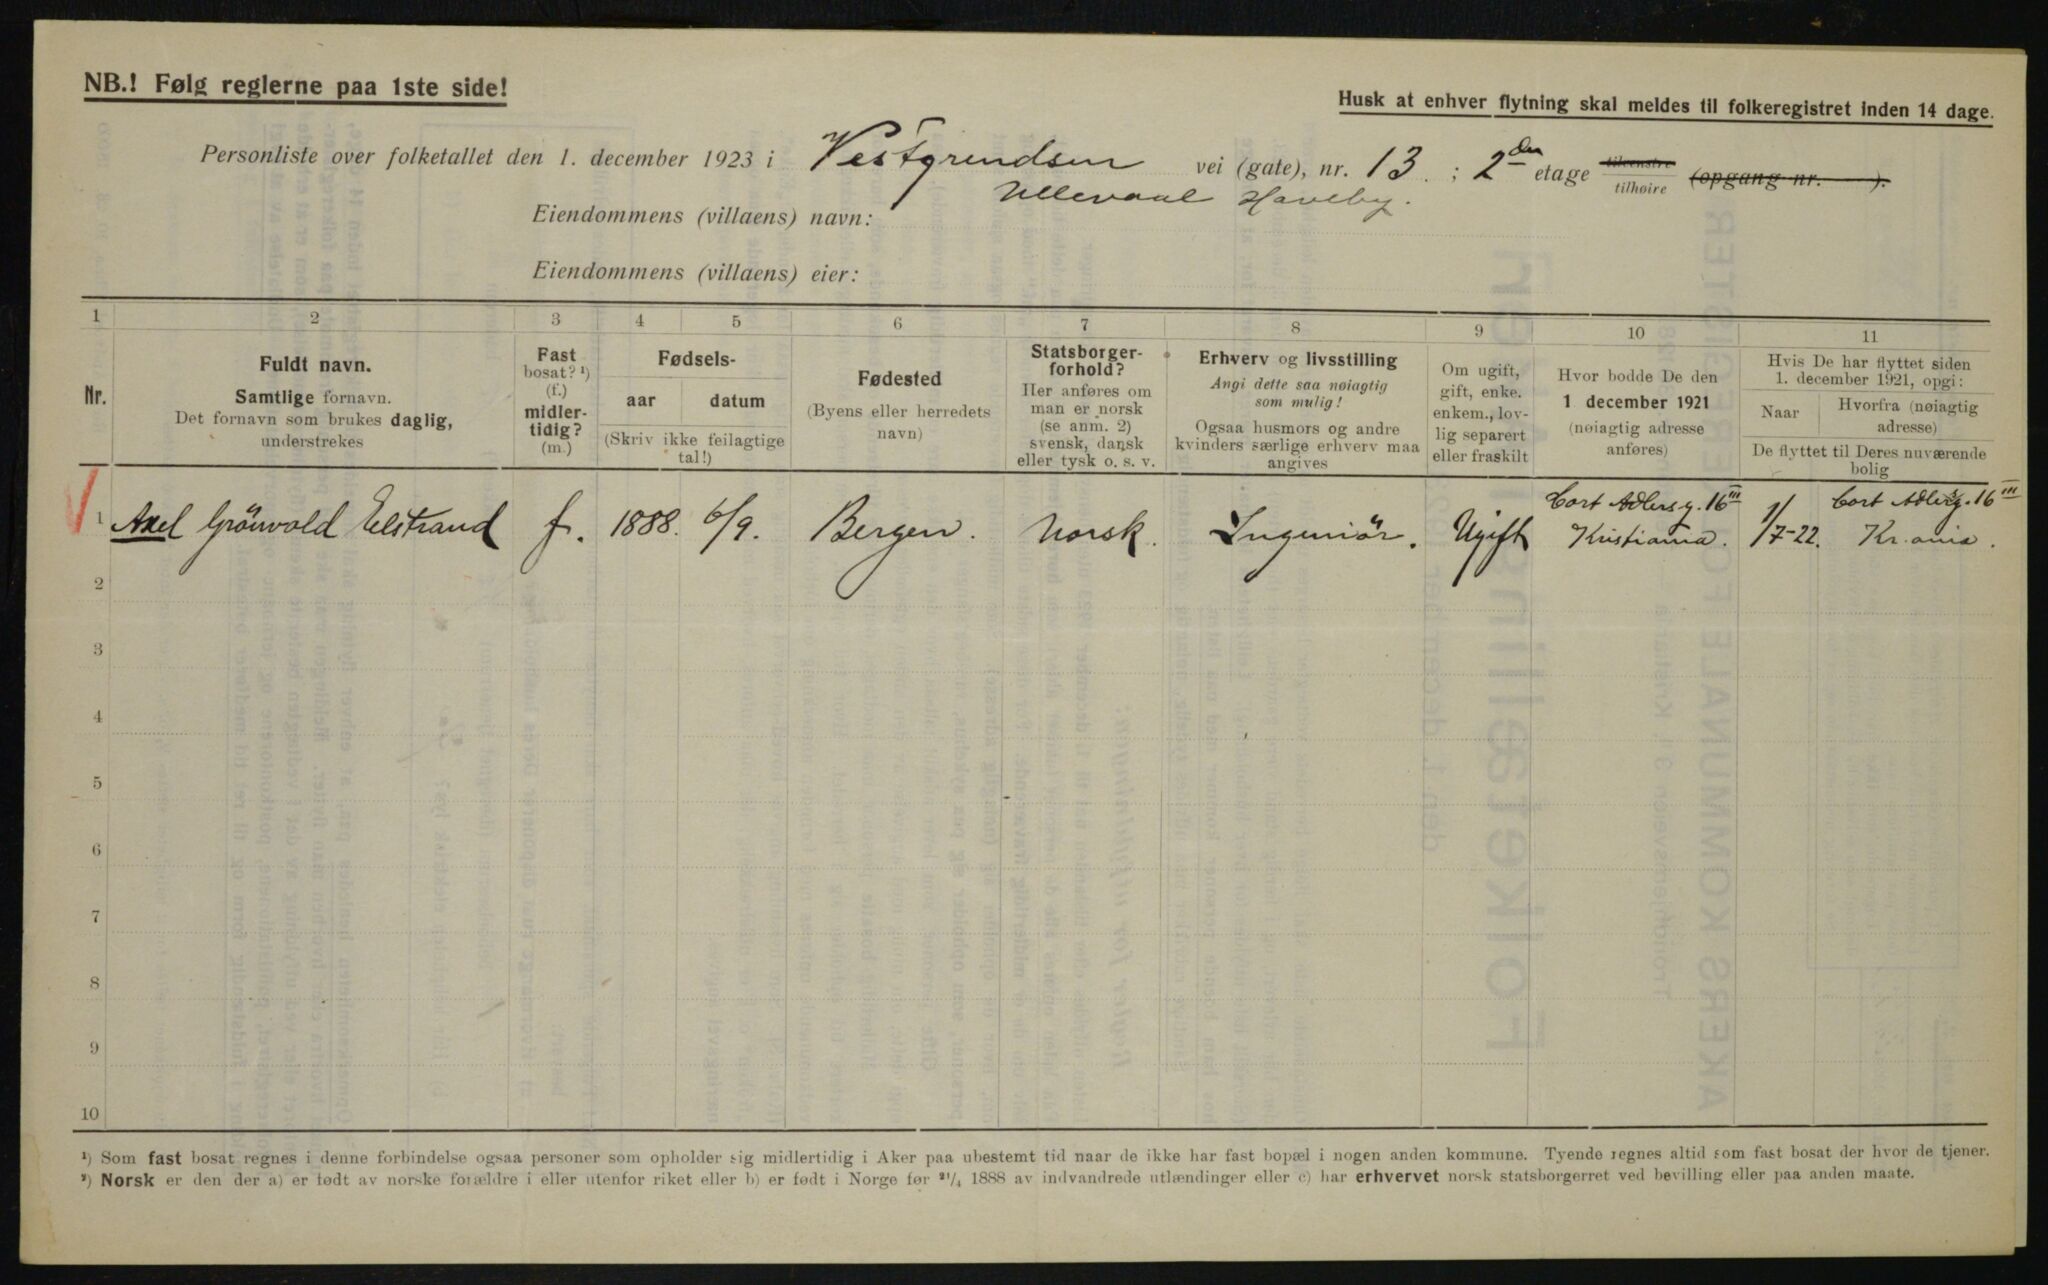 NB.! Følg reglerne paa 1ste side!
Husk at enhver flytning skal meldes til folkeregistret inden 14 dage.
Personliste over folketallet den 1. december 1923 i Vestgrendsen vei (gate), nr. 13 ; 2den etage tilvenstre tilhøire (opgang nr. ).
Ullevaal Haveby.
Eiendommens (villaens) navn:
Eiendommens (villaens) eier:
1 2 3 4 5 6 7 8 9 10 11
Nr.
Fuldt navn.
Samtlige fornavn.
Det fornavn som brukes daglig,
understrekes
Fast
bosat? ¹)
(f.)
midler-
tidig?
(m.)
Fødsels-
aar datum
(Skriv ikke feilagtige
tal!)
Fødested
(Byens eller herredets
navn)
Statsborger-
forhold?
Her anføres om
man er norsk
(se anm. 2)
svensk, dansk
eller tysk o. s. v.
Erhverv og livsstilling
Angi dette saa nøiagtig
som mulig!
Ogsaa husmors og andre
kvinders særlige erhverv maa
angives
Om ugift,
gift, enke.
enkem., lov-
lig separert
eller fraskilt
Hvor bodde De den
1 december 1921
(nøiagtig adresse
anføres)
Hvis De har flyttet siden
1. december 1921, opgi:
Naar
Hvorfra (nøiagtig
adresse)
De flyttet til Deres nuværende
bolig
Cort Adlersg. 16 III Cort Adlersg. 16 III
1 Axel Grönvold Eelstrand f. 1888. 6/9. Bergen. Norsk. Ingeniör. Ugift Kristiania. 1/7-22. Kr.ania.
2
3
4
5
6
7
8
9
10
¹) Som fast bosat regnes i denne forbindelse ogsaa personer som opholder sig midlertidig i Aker paa ubestemt tid naar de ikke har fast bopæl i nogen anden kommune. Tyende regnes altid som fast bosat der hvor de tjener.
²) Norsk er den der a) er født av norske forældre i eller utenfor riket eller b) er født i Norge før ²¹/₄ 1888 av indvandrede utlændinger eller c) har erhvervet norsk statsborgerret ved bevilling eller paa anden maate.